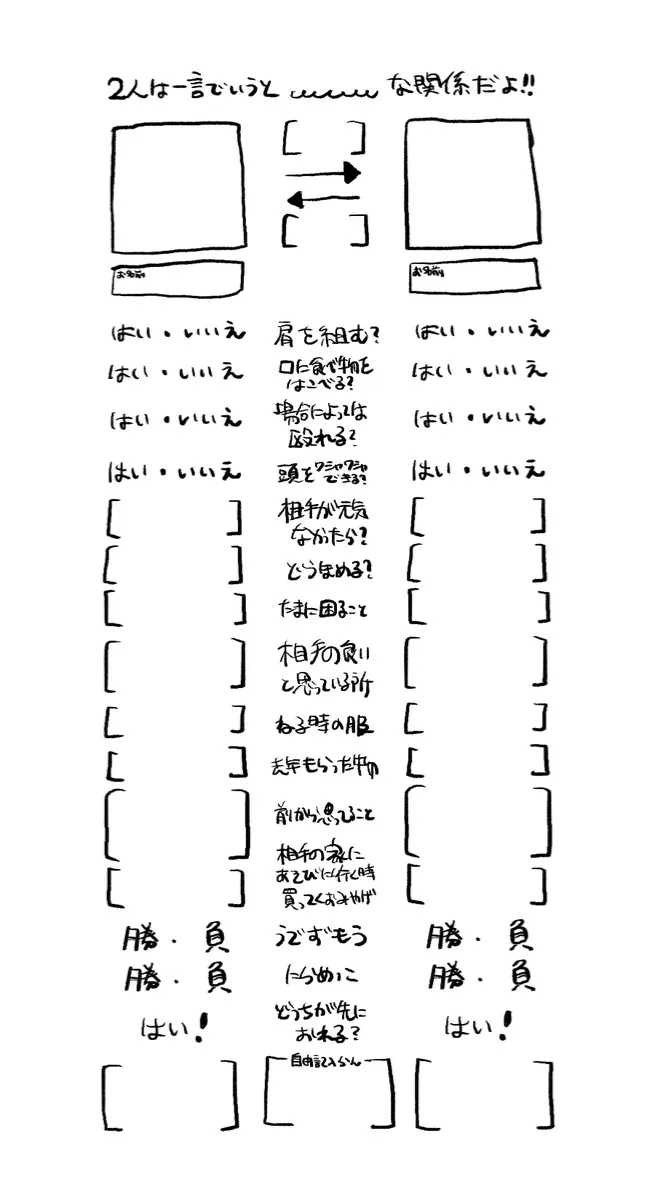 2人は一言でいうと な関係だよ!!
お名前 お名前
はい・いいえ 肩を組む? はい・いいえ
はい・いいえ 口に食べ物を はい・いいえ
はこべる?
はい・いいえ 場合によっては はい・いいえ
殴れる?
はい・いいえ 頭をワシャワシャ はい・いいえ
できる?
相手が元気
なかったら?
どうほめる?
たまに困ること
相手の良い
と思っている所
ねる時の服
去年もらった
前から思ってること
相手の家に
あそびに行く時
買ってくおみやげ
勝・負 うでずもう 勝・負
勝・負 にらめっこ 勝・負
どっちが先に
はい! おれる? はい!
自由記入らん